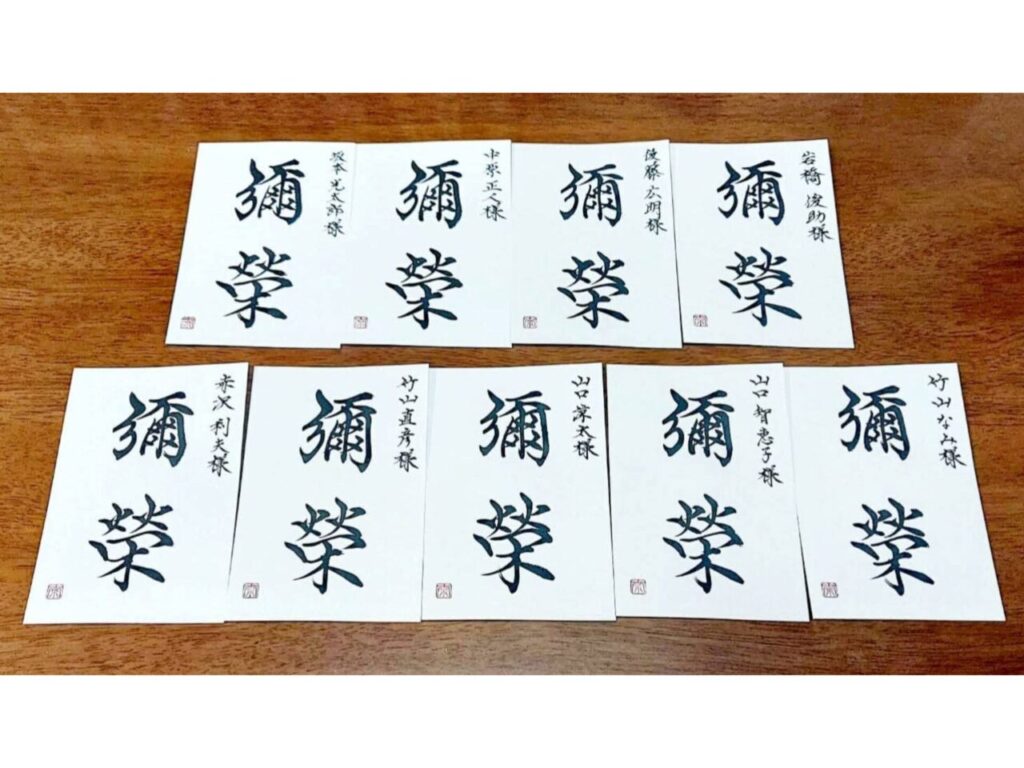 坂本光太郎様
彌榮
中原正人様
彌榮
後藤広明様
彌榮
岩橋 俊助様
彌榮
赤沢利夫様
彌榮
竹山直彦様
彌榮
山口
彌榮
山口智恵子様
彌榮
竹山なみ様
彌榮